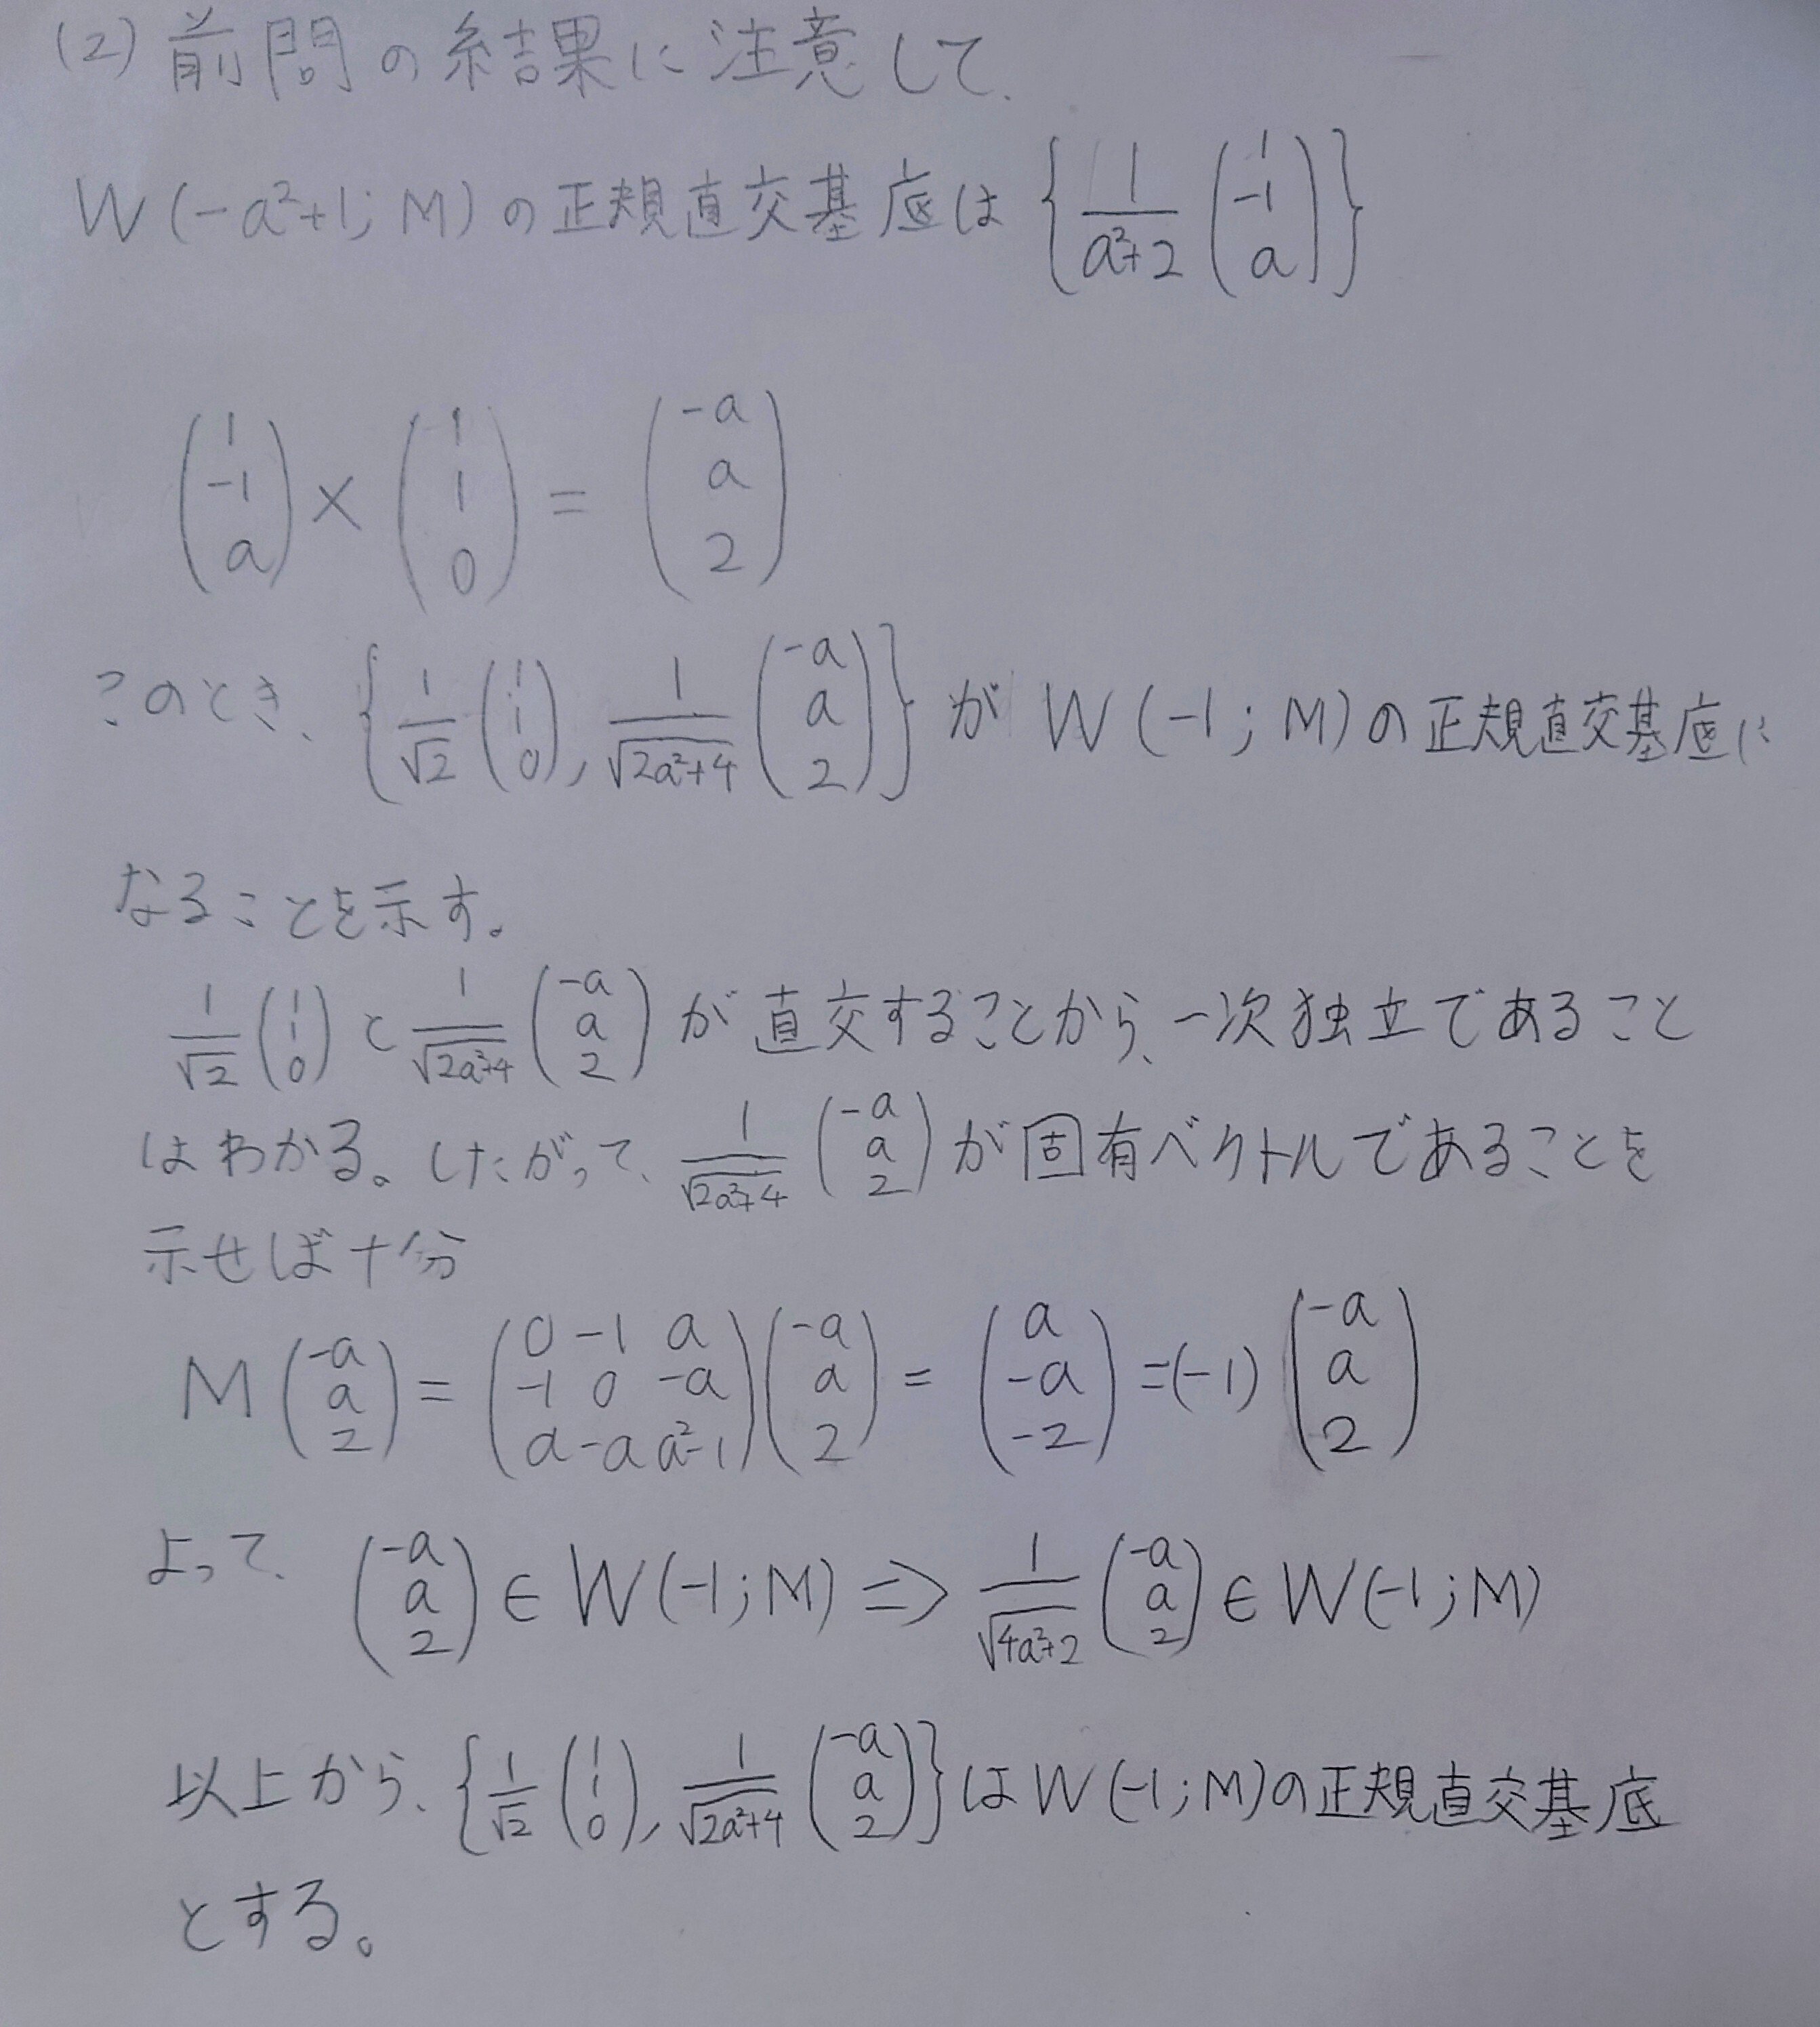 (2) 前問の結果に注意して、
W(-a²+1; M)の正規直交基底は { 1/(a²+2) (1, -1, a) }
(1, -1, a) × (1, 1, 0) = (-a, a, 2)
このとき、{ 1/√2 (1, 1, 0), 1/√(2a²+4) (-a, a, 2) } が W(-1; M)の正規直交基底に
なることを示す。
1/√2 (1, 1, 0) と 1/√(2a²+4) (-a, a, 2) が直交することから、一次独立であること
はわかる。したがって、1/√(2a²+4) (-a, a, 2) が固有ベクトルであることを
示せば十分
M (-a, a, 2) = (0 -1 a, -1 0 -a, a -a a²-1) (-a, a, 2) = (a, -a, -2) = (-1) (-a, a, 2)
よって、(-a, a, 2) ∈ W(-1; M) ⇒ 1/√(4a²+2) (-a, a, 2) ∈ W(-1; M)
以上から、{ 1/√2 (1, 1, 0), 1/√(2a²+4) (-a, a, 2) } は W(-1; M)の正規直交基底
とする。